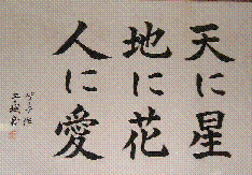 天に星
地に花
人に愛